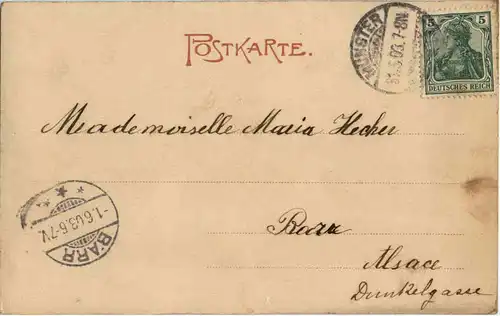 POSTKARTE.
MÜNSTER
31.5.03.7-8N
5 5
DEUTSCHES REICH
Mademoiselle Maria Hecker
-1.6.03.6-7V.
BARR
Barr
Alsace
Dunkelgasse